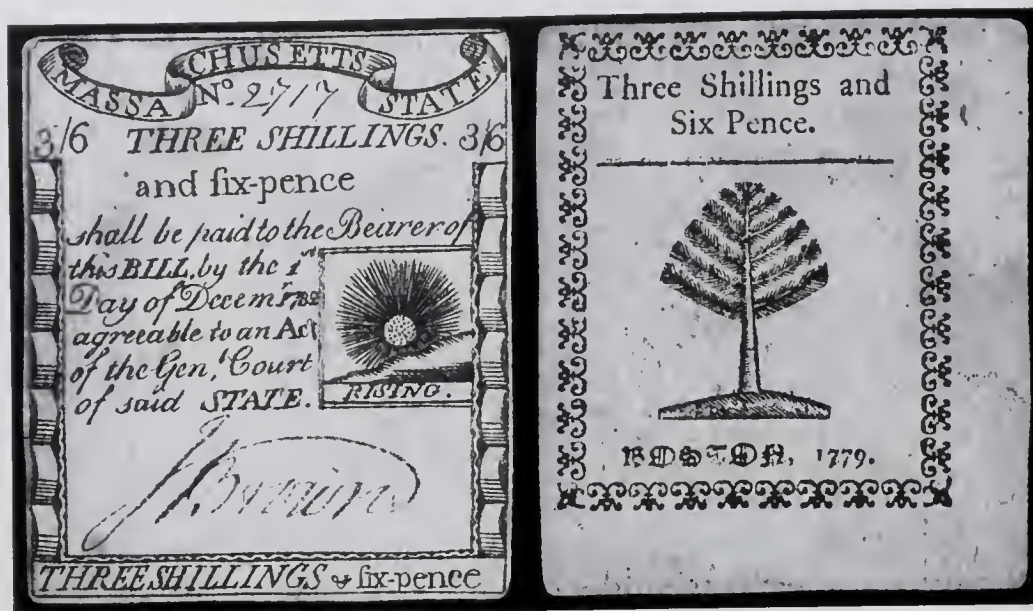 MASSACHUSETTS STATE
Nº. 2717
3/6 THREE SHILLINGS. 3/6
and ſix-pence
shall be paid to the Bearer of
this BILL, by the 1ˢᵗ
Day of Decemʳ. 1782
agreeable to an Act
of the Gen,ˡ Court
of said STATE.
RISING.
J Brown
THREE SHILLINGS & ſix-pence
Three Shillings and
Six Pence.
BOSTON, 1779.